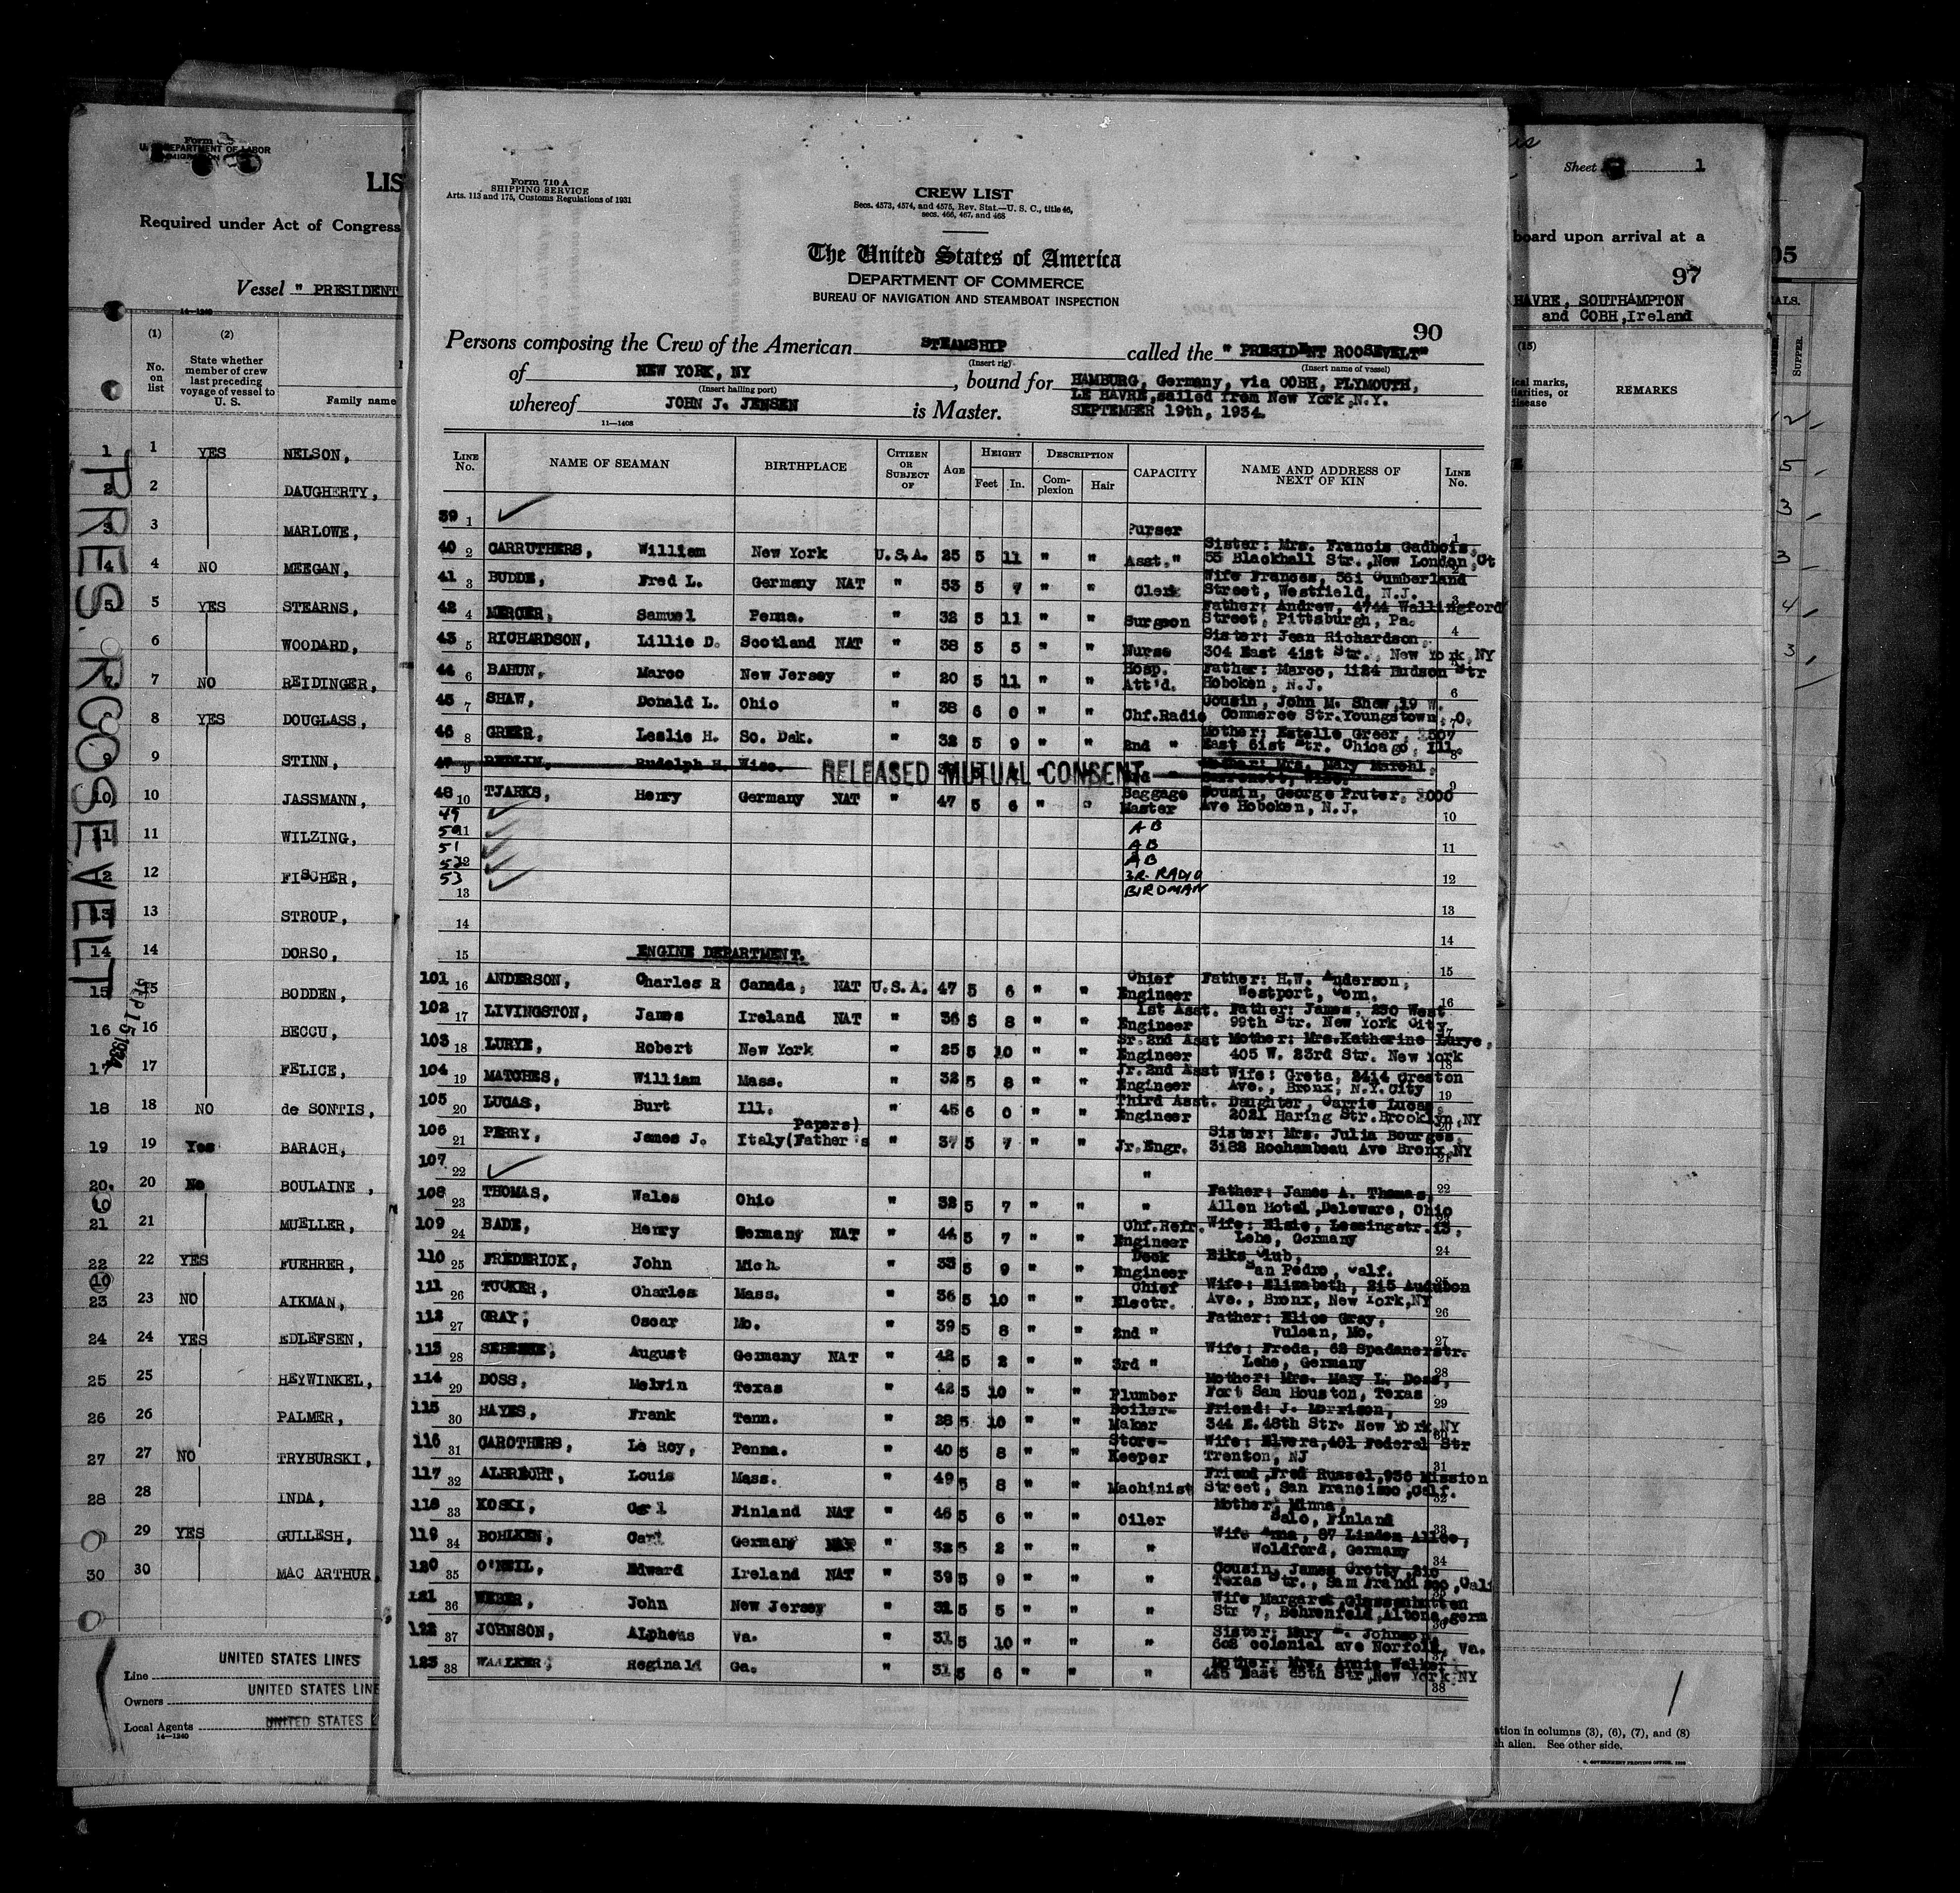 Form
U. S. DEPARTMENT OF LABOR
LIS
Required under Act of Congress
Vessel " PRESIDENT
14—1240
(1)
(2)
No. on list
State whether member of crew last preceding voyage of vessel to U. S.
Family name
1 1 YES NELSON,
2 2 DAUGHERTY,
3 3 MARLOWE,
4 4 NO MEEGAN,
5 5 YES STEARNS,
6 WOODARD,
7 NO REIDINGER,
8 YES DOUGLASS,
9 STINN,
10 10 JASSMANN,
11 11 WILZING,
12 12 FISCHER,
13 13 STROUP,
14 14 DORSO,
15 15 BODDEN,
16 16 BECCU,
17 17 FELICE,
18 18 NO de SONTIS,
19 19 Yes BARACH,
20. 20 No BOULAINE ,
10
21 21 MUELLER,
22 22 YES FUEHRER,
10
23 23 NO AIKMAN,
24 24 YES EDLEFSEN,
25 25 HEYWINKEL,
26 26 PALMER,
27 27 NO TRYBURSKI,
28 28 INDA,
29 YES GULLESH,
30 30 MAC ARTHUR,
PRES. ROOSEVELT
SEP 15 1934
Line UNITED STATES LINES
Owners UNITED STATES LINE
Local Agents UNITED STATES
14—1240
Form 710 A
SHIPPING SERVICE
Arts. 113 and 175, Customs Regulations of 1931
CREW LIST
Secs. 4573, 4574, and 4575, Rev. Stat.—U. S. C., title 46,
secs. 466, 467, and 468
The United States of America
DEPARTMENT OF COMMERCE
BUREAU OF NAVIGATION AND STEAMBOAT INSPECTION
90
Persons composing the Crew of the American STEAMSHIP called the " PRESIDENT ROOSEVELT"
(Insert rig) (Insert name of vessel)
of NEW YORK, NY , bound for HAMBURG, Germany, via COBH, PLYMOUTH,
(Insert hailing port)
LE HAVRE,sailed from New York,N.Y.
whereof JOHN J. JENSEN is Master. SEPTEMBER 19th, 1934.
11—1408
LINE No. NAME OF SEAMAN BIRTHPLACE CITIZEN OR SUBJECT OF AGE HEIGHT Feet In. DESCRIPTION Complexion Hair CAPACITY NAME AND ADDRESS OF NEXT OF KIN LINE No.
39 1 ✓ Purser 1
40 2 CARRUTHERS, William New York U.S.A. 25 5 11 " " Asst." Sister: Mrs. Francis Gadbois, 55 Blackhall Str.,New London,Ct 2
41 3 BUDDE, Fred L. Germany NAT " 53 5 7 " " Clerk Wife Frances, 561 Cumberland Street, Westfield, N.J. 3
42 4 MERCER, Samuel Penna. " 32 5 11 " " Surgeon Father: Andrew, 4744 Wallingford Street, Pittsburgh, Pa. 4
43 5 RICHARDSON, Lillie D. Scotland NAT " 38 5 5 " " Nurse Sister: Jean Richardson, 304 East 41st Str., New York,NY
44 6 BAHUN, Marco New Jersey " 20 5 11 " " Hosp. Att'd. Father: Marco, 1124 Hudson Str Hoboken, N.J. 6
45 7 SHAW, Donald L. Ohio " 38 6 0 " " Chf.Radio Cousin, John M. Shaw,19 W. Commerce Str.Youngstown, O. 7
46 8 GREER, Leslie H. So. Dak. " 32 5 9 " " 2nd " Mother: Estelle Greer, East 61st Str. Chicago, Ill. 8
47 9 Rudolph H. Wisc. RELEASED MUTUAL CONSENT Mrs. Mary Wisc. 9
48 10 TJARKS, Henry Germany NAT " 47 5 6 " " Baggage Master Cousin, George Fruter, Ave Hoboken, N.J. 10
49 ✓ AB
50 11 ✓ AB 11
51 ✓ AB
52 12 ✓ 3R. RADIO 12
53 13 ✓ BIRDMAN 13
14 14
15 ENGINE DEPARTMENT. 15
101 16 ANDERSON, Charles R Canada, NAT U.S.A. 47 5 6 " " Chief Engineer Father: H.W. Anderson, Westport, Conn. 16
102 17 LIVINGSTON, James Ireland NAT " 36 5 8 " " 1st Asst. Engineer Father: James, 230 West 99th Str. New York City 17
103 18 LURYE, Robert New York " 25 5 10 " " Sr.2nd Asst Engineer Mother: Mrs.Katherine Lurye, 405 W. 23rd Str. New York 18
104 19 MATCHES, William Mass. " 32 5 8 " " Jr.2nd Asst Engineer Wife: Greta, 2414 Creston Ave., Bronx, N.Y.City 19
105 20 LUCAS, Burt Ill. " 45 6 0 " " Third Asst. Engineer Daughter, Carrie Lucas, 2021 Haring Str.Brooklyn,NY 20
106 21 PERRY, James J. Italy(Father's Papers) " 37 5 7 " " Jr.Engr. Sister: Mrs. Julia Bourges, 3182 Rochambeau Ave Bronx,NY 21
107 22 ✓ " 22
108 23 THOMAS, Wales Ohio " 32 5 7 " " " Father: James A. Thomas, Allen Hotel,Delaware, Ohio 23
109 24 BADE, Henry Germany NAT " 44 5 7 " " Chf.Refr. Engineer Wife: Elsie, Lessingstr.13, Lehe, Germany 24
110 25 FREDERICK, John Mich. " 33 5 9 " " Deck Engineer Elks Club, San Pedro, Calf. 25
111 26 TUCKER, Charles Mass. " 36 5 10 " " Chief Electr. Wife: Elizabeth, 215 Audubon Ave., Bronx, New York,NY 26
112 27 GRAY, Oscar Mo. " 39 5 8 " " 2nd " Father: Elice Gray, Vulcan, Mo. 27
113 28 August Germany NAT " 42 5 2 " " 3rd " Wife: Freda, 62 Spadenerstr. Lehe, Germany 28
114 29 DOSS, Melvin Texas " 42 5 10 " " Plumber Mother: Mrs. Mary L. Doss, Fort Sam Houston, Texas 29
115 30 HAYES, Frank Tenn. " 28 5 10 " " Boiler- Maker Friend: J. Morrison, 344 E. 48th Str. New York,NY
116 31 CAROTHERS, Le Roy, Penna. " 40 5 8 " " Store- Keeper Wife: Elvera,401 Federal Str Trenton, NJ 31
117 32 ALBRECHT, Louis Mass. " 49 5 8 " " Machinist Friend,Fred Russel,936 Mission Street, San Francisco,Calf. 32
118 33 KOSKI, Carl Finland NAT " 46 5 6 " " Oiler Mother, Minna, Salo, Finland 33
119 34 BOHLKEN, Carl Germany NAT " 32 5 2 " " " Wife Anna, 87 Linden Allee, Woldford, Germany 34
120 35 O'NEIL, Edward Ireland NAT " 39 5 9 " " " Cousin, James Crotty, 210 Texas Str., Sam Francisco,Cali
121 36 WEBER, John New Jersey " 31 5 5 " " " Wife Margaret, Str 7, Behrenfeld,Altona,germ 36
122 37 JOHNSON, Alpheus Va. " 31 5 10 " " " Sister: Mary Johnson, 608 colonial ave Norfolk, Va. 37
123 38 WAALKER, Reginald Ga. " 31 5 6 " " " Mother: Mrs. Annie Walker East 65th Str,New York,NY 38
Sheet 1
board upon arrival at a
97
HAVRE, SOUTHAMPTON
and COBH,Ireland
(15)
REMARKS
ation in columns (3), (6), (7), and (8)
h alien. See other side.
05
ALS.
SUPPER.